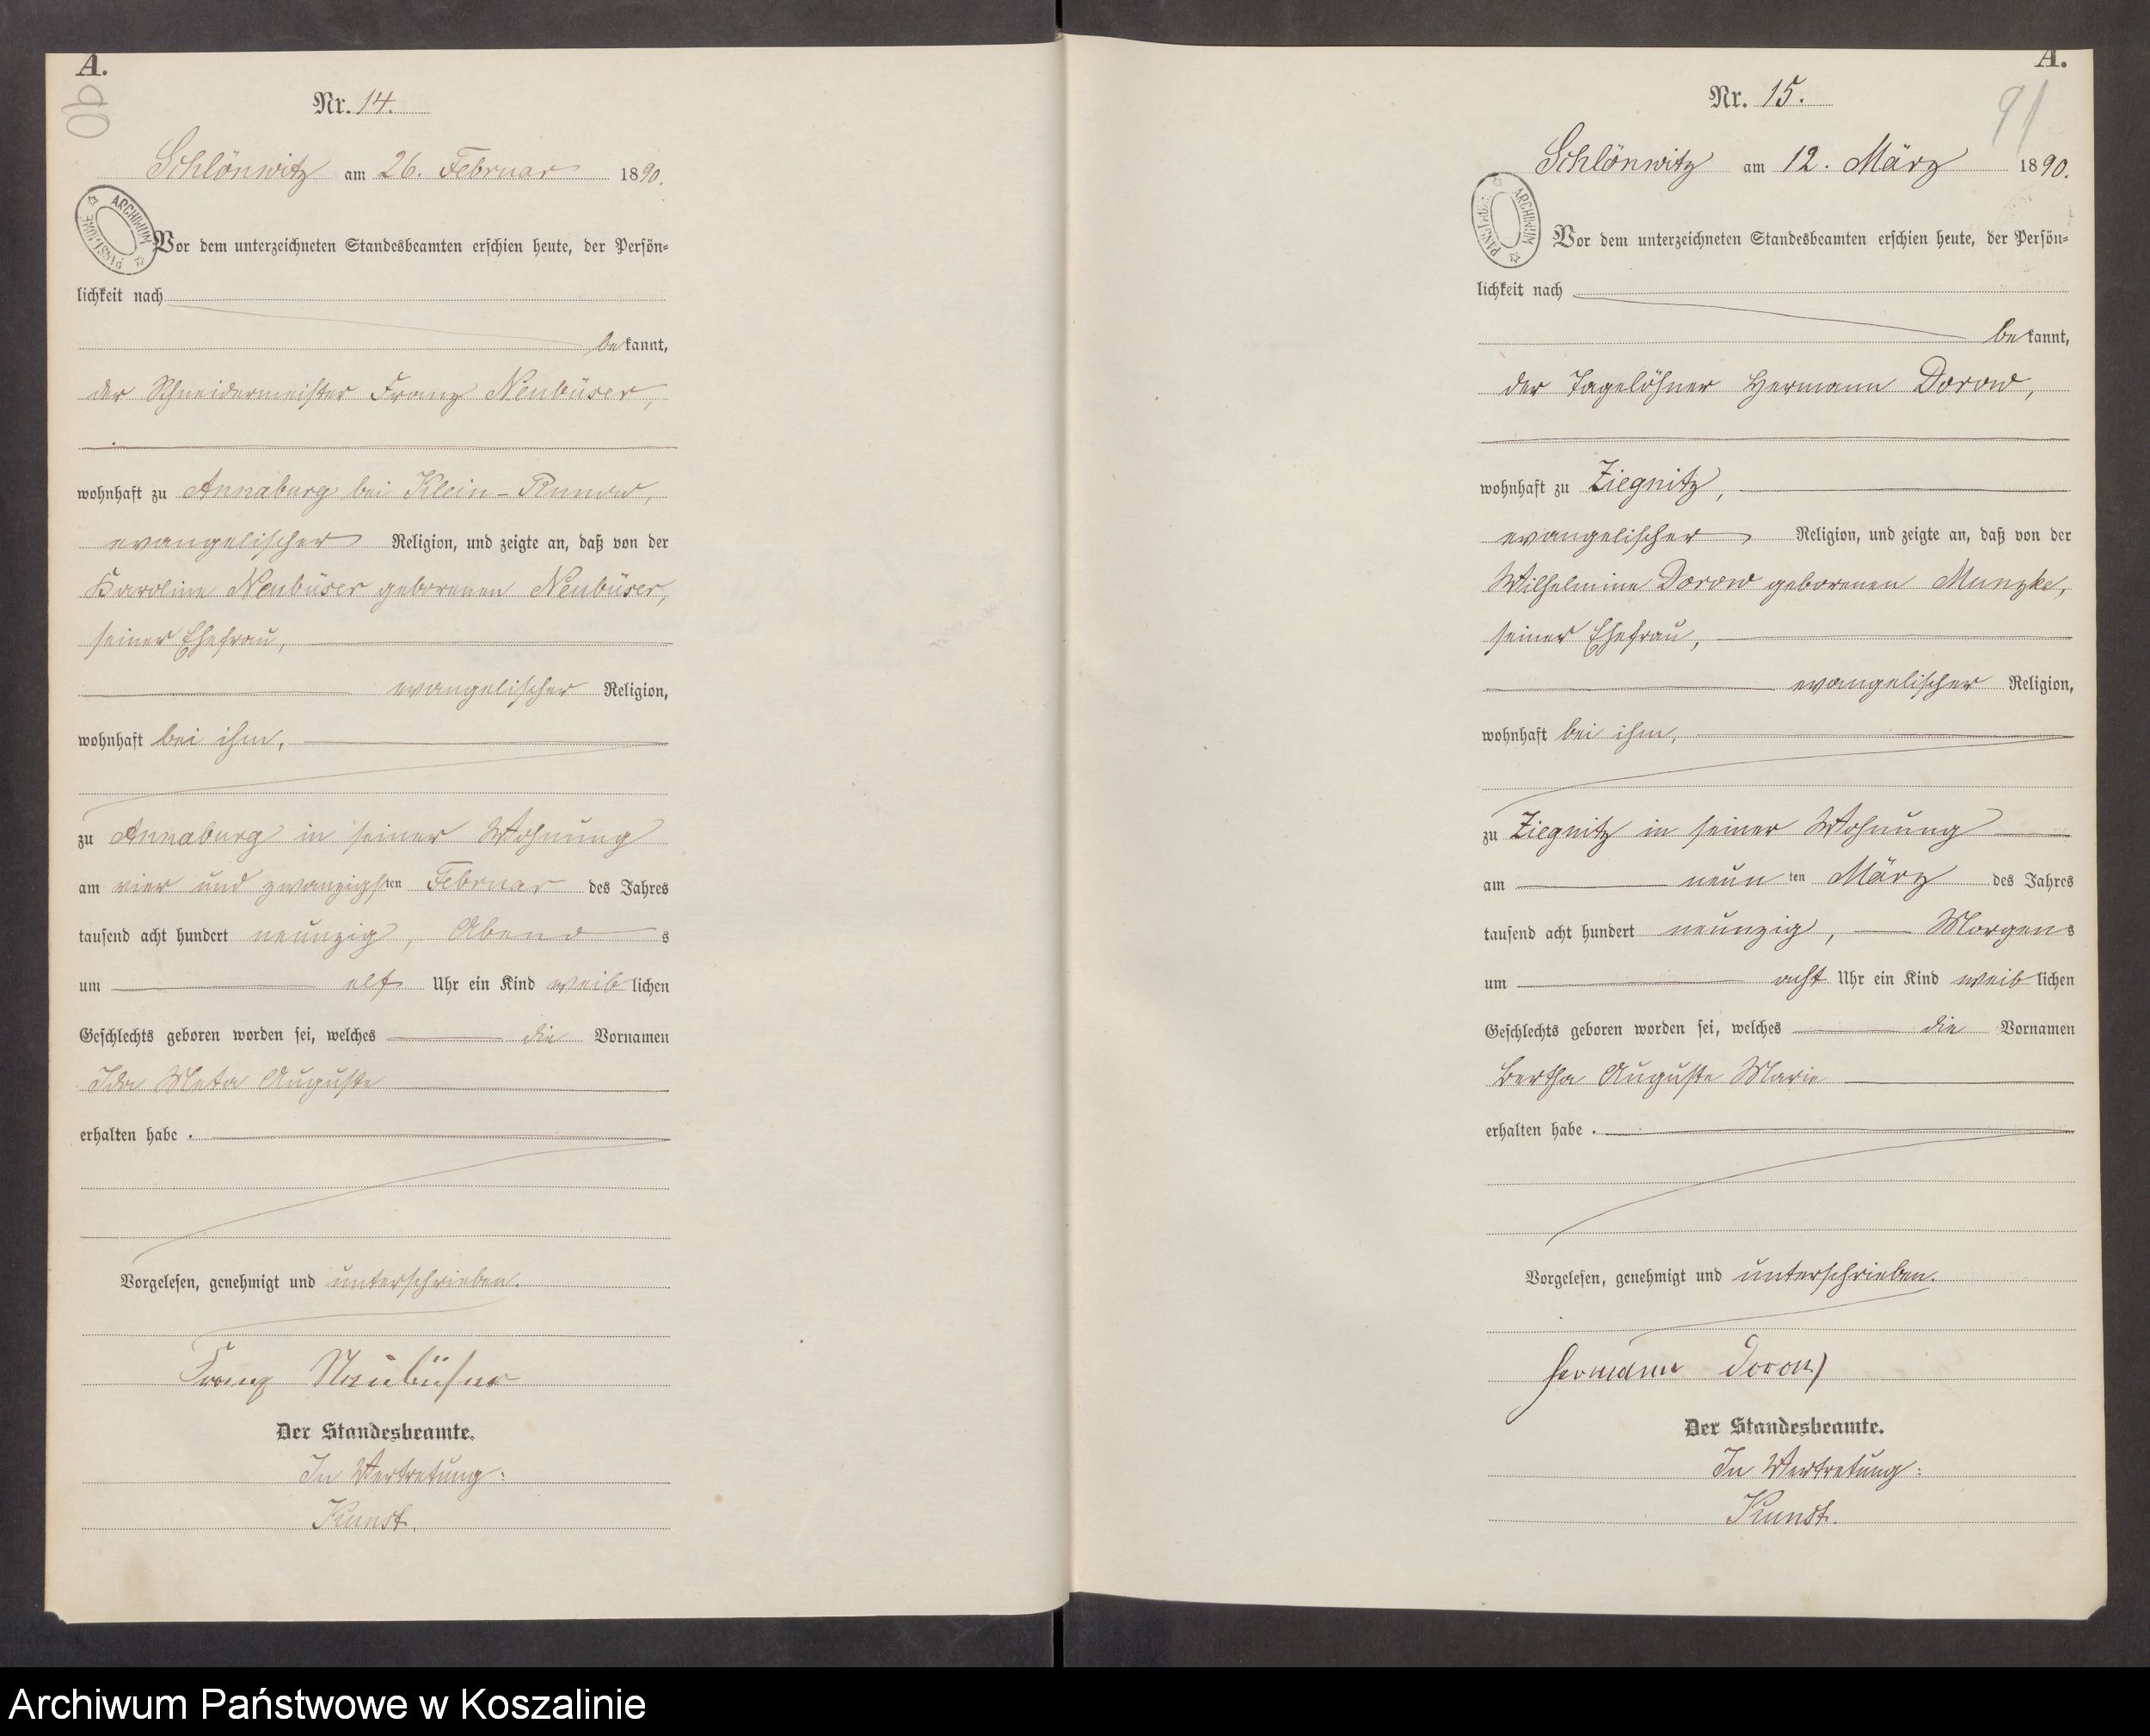 A.
90
Nr. 14.
Schlönwitz am 26. Februar 1890.
ARCHIWUM PAŃSTWOWE
Vor dem unterzeichneten Standesbeamten erschien heute, der Persön=
lichkeit nach
bekannt,
der Schneidermeister Franz Neubüser,
wohnhaft zu Annaburg bei Klein-Runow,
evangelischer Religion, und zeigte an, daß von der
Karoline Neubüser geborenen Neubüser,
seiner Ehefrau,
evangelischer Religion,
wohnhaft bei ihm,
zu Annaburg in seiner Wohnung
am vier und zwanzigsten Februar des Jahres
tausend acht hundert neunzig, Abends
um elf Uhr ein Kind weiblichen
Geschlechts geboren worden sei, welches die Vornamen
Ida Meta Auguste
erhalten habe.
Vorgelesen, genehmigt und unterschrieben.
Franz Neubüser
Der Standesbeamte.
In Vertretung:
Kunst.
A.
91
Nr. 15.
Schlönwitz am 12. März 1890.
ARCHIWUM PAŃSTWOWE
Vor dem unterzeichneten Standesbeamten erschien heute, der Persön=
lichkeit nach
bekannt,
der Tagelöhner Hermann Dorow,
wohnhaft zu Ziegnitz,
evangelischer Religion, und zeigte an, daß von der
Wilhelmine Dorow geborenen Munzke,
seiner Ehefrau,
evangelischer Religion,
wohnhaft bei ihm,
zu Ziegnitz in seiner Wohnung
am neunten März des Jahres
tausend acht hundert neunzig, Morgens
um acht Uhr ein Kind weiblichen
Geschlechts geboren worden sei, welches die Vornamen
Bertha Auguste Marie
erhalten habe.
Vorgelesen, genehmigt und unterschrieben.
Hermann Dorow
Der Standesbeamte.
In Vertretung:
Kunst.
Archiwum Państwowe w Koszalinie